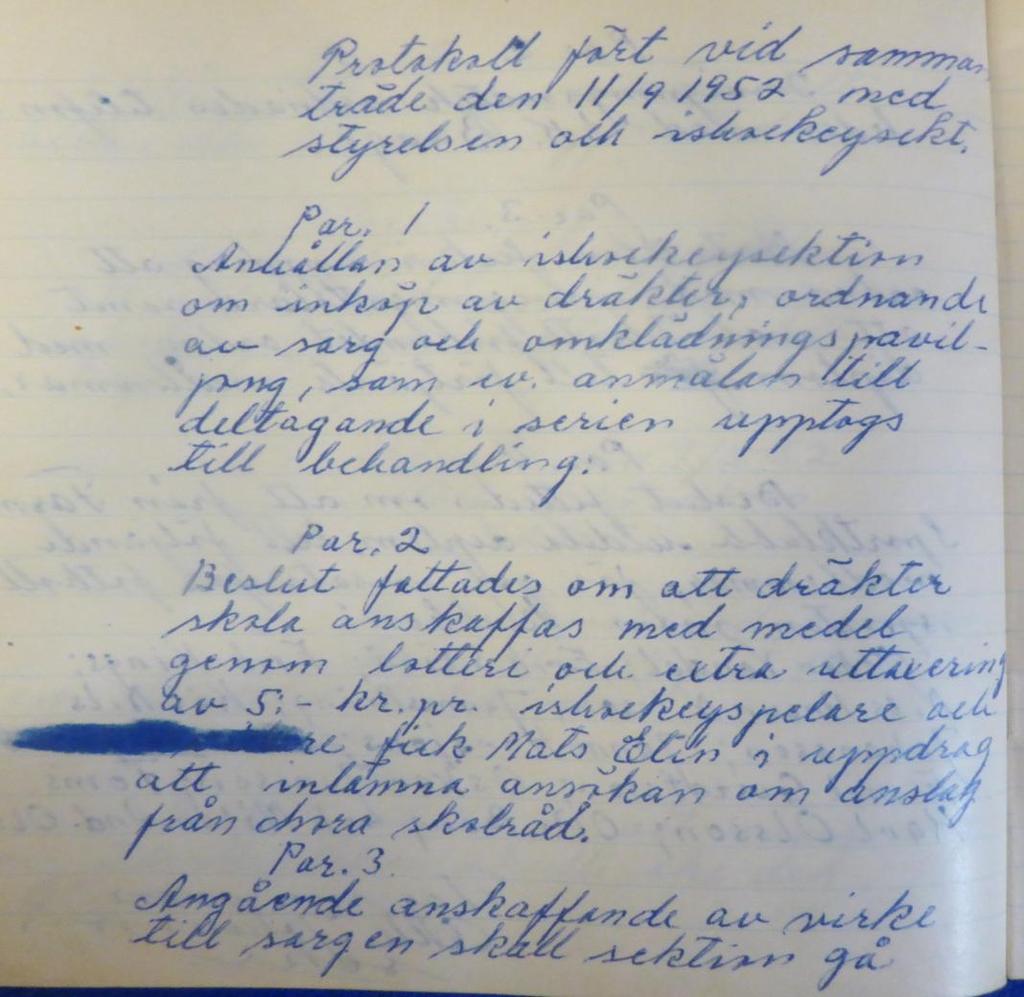 Protokoll fört vid samman
träde den 11/9 1952 med
styrelsen och ishockeysekt.
Par. 1
Anhållan av ishockeysektion
om inköp av dräkter, ordnande
av sarg och omklädningspavil-
jong, sam ev. anmälan till
deltagande i serien upptogs
till behandling.
Par. 2
Beslut fattades om att dräkter
skola anskaffas med medel
genom lotteri och extra uttaxering
av 5:- kr. pr. ishockeyspelare och
fick Mats Elin i uppdrag
att inlämna ansökan om anslag
från skolråd.
Par. 3
Angående anskaffande av virke
till sargen skall sektion gå